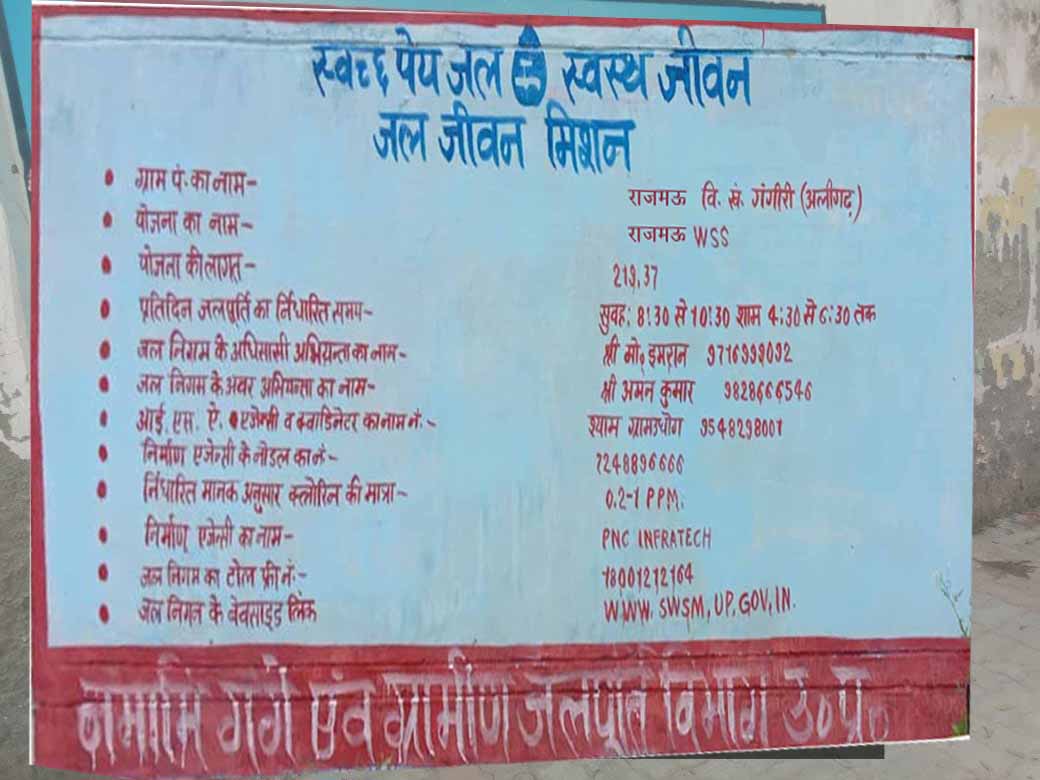 स्वच्छ पेय जल स्वस्थ जीवन
जल जीवन मिशन
• ग्राम पं. का नाम- राजमऊ वि. खं. गंगीरी (अलीगढ़)
• योजना का नाम- राजमऊ WSS
• योजना की लागत- 219.37
• प्रतिदिन जलपूर्ति का र्निधारित समय- सुवह: 8:30 से 10:30 शाम 4:30 से 6:30 तक
• जल निगम के अधिसासी अभियन्ता का नाम- श्री मो॰ इमरान 9716999092
• जल निगम के अवर अभियन्ता का नाम- श्री अमन कुमार 9828666546
• आई. एस. ऐ. एजेन्सी व क्वाडिनेटर का नाम नं:- श्याम ग्रामउधोग 9548298001
• निर्माण एजेन्सी के नोडल का नं- 7248896666
• र्निधारित मानक अनुसार क्लोरिन की मात्रा- 0.2-1 PPM.
• निर्माण एजेन्सी का नाम- PNC INFRATECH
• जल निगम का टोल फ्री नं:- 18001212164
• जल निगम के बेवसाइड लिंक WWW. SWSM, UP, GOV, IN.
नमामि गंगे एवं ग्रामीण जलपूर्ति विभाग उ०प्र०